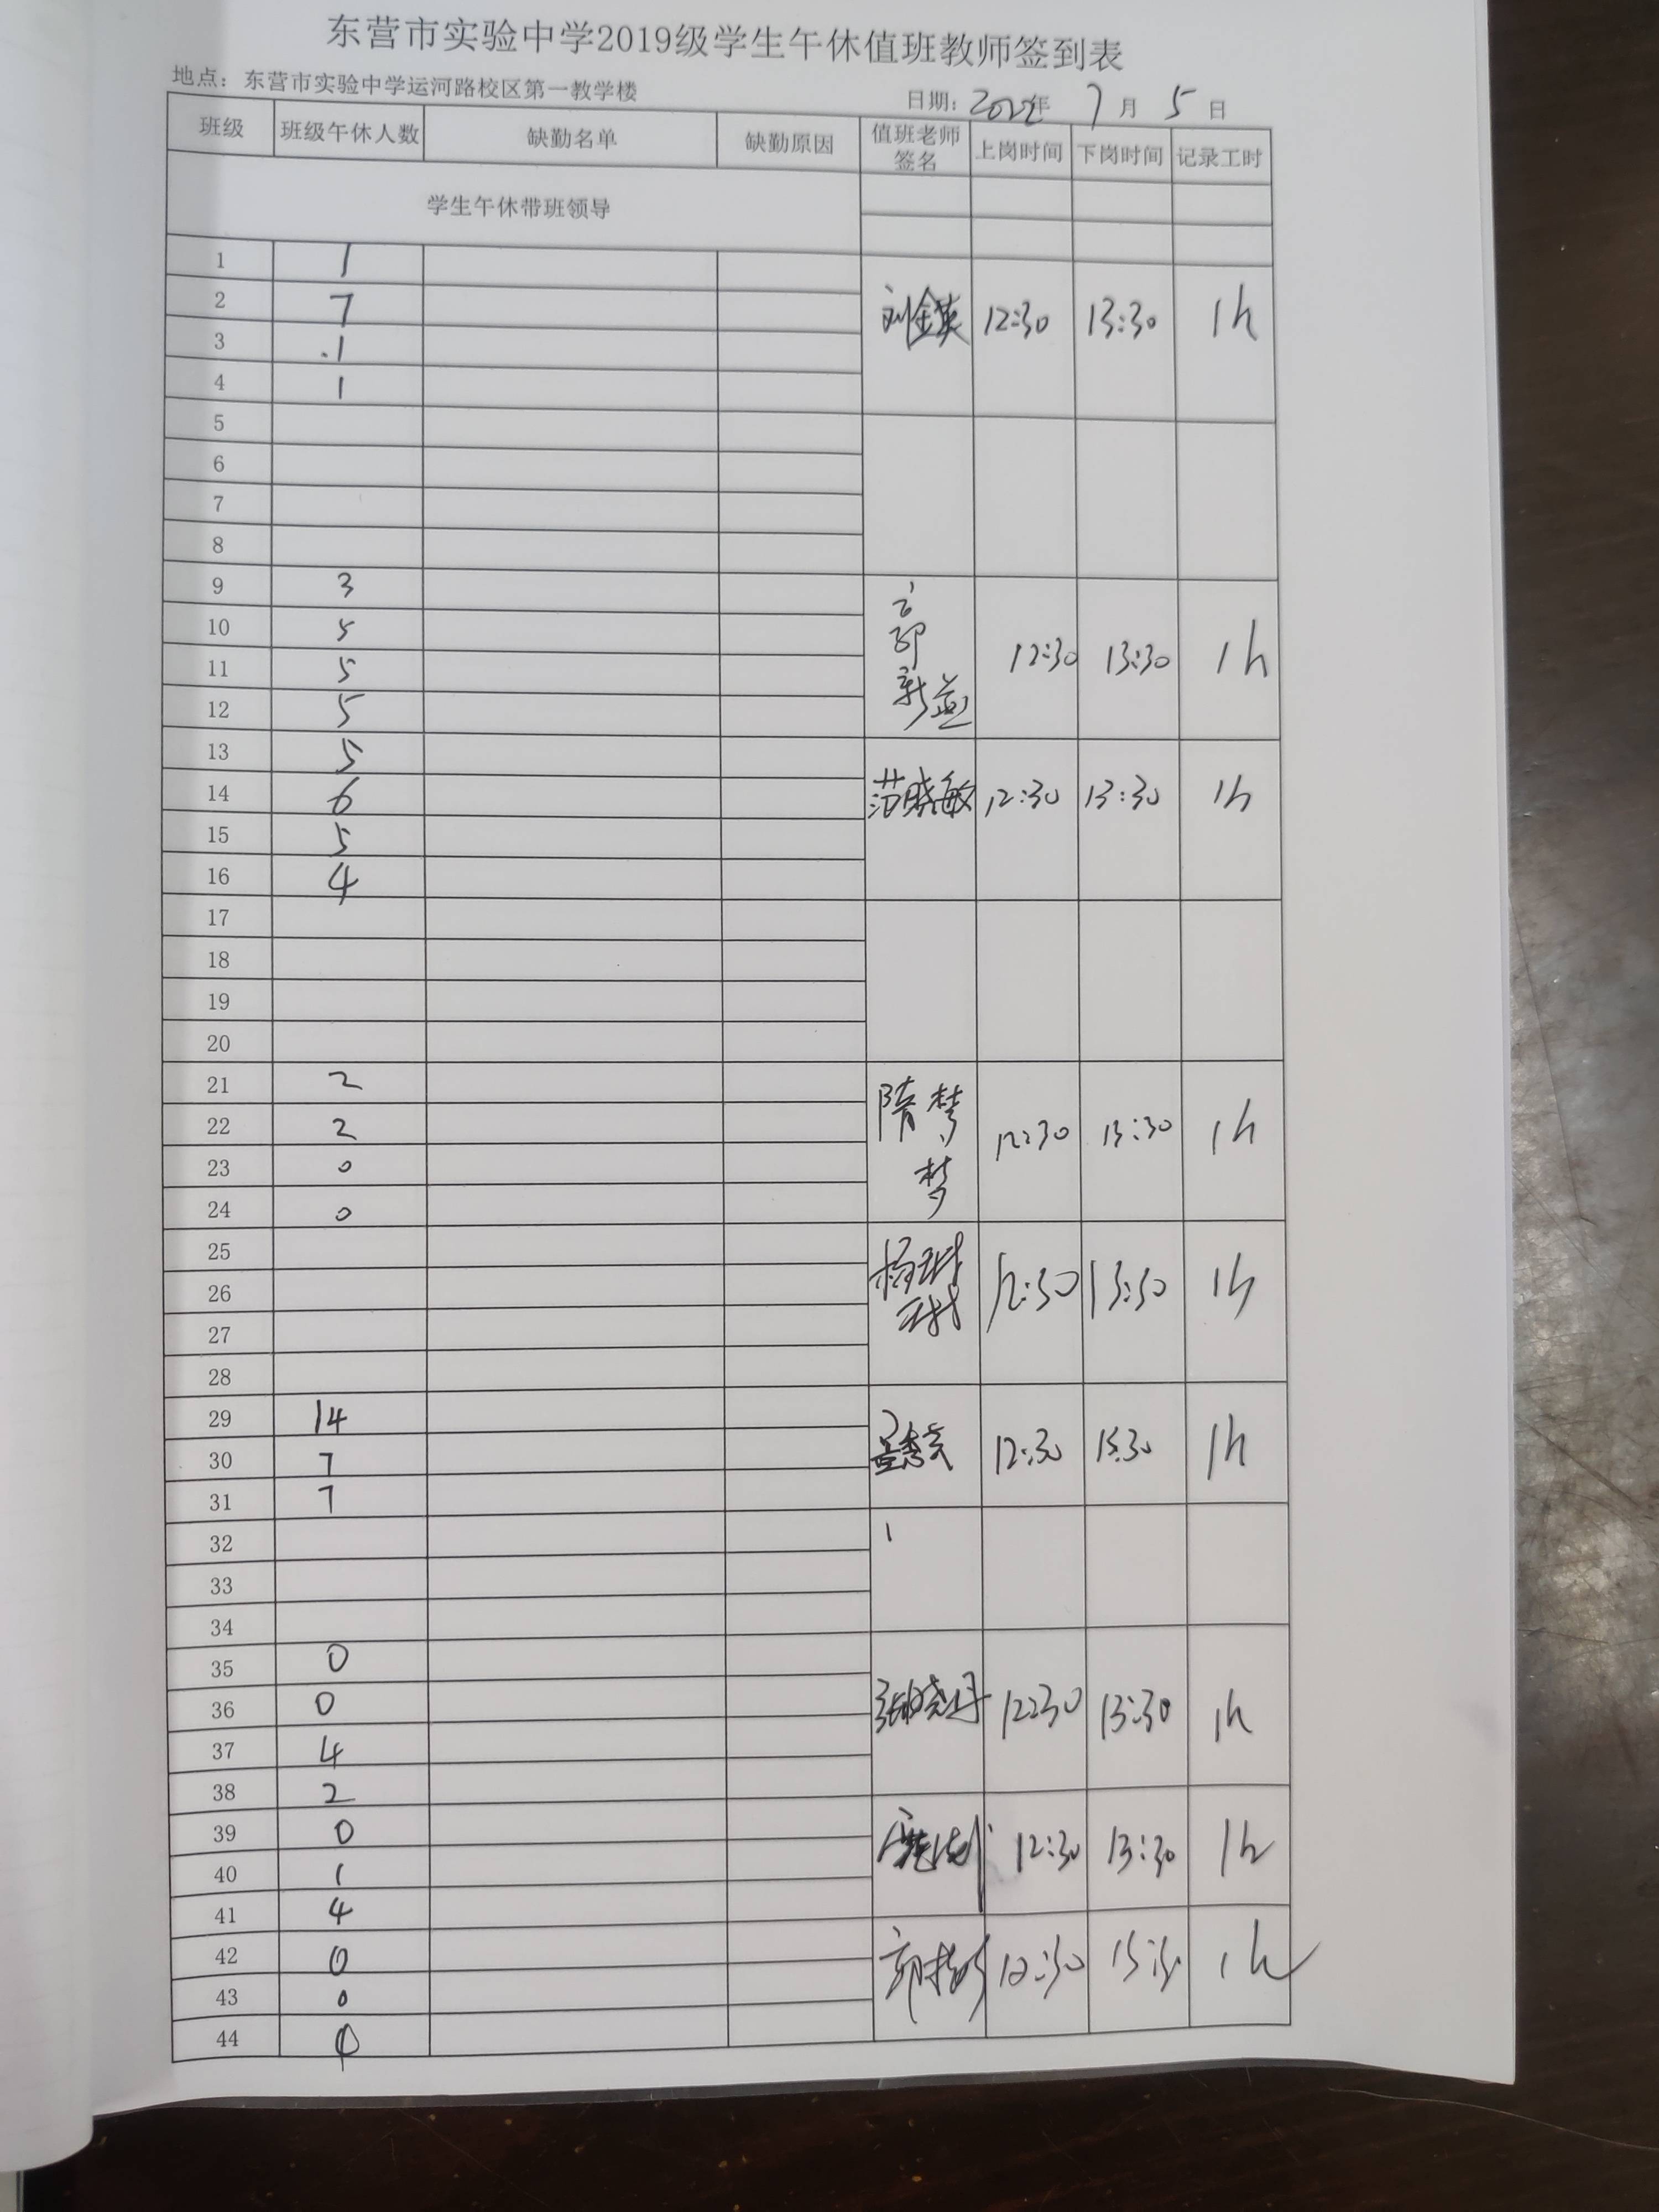 东营市实验中学2019级学生午休值班教师签到表
地点：东营市实验中学运河路校区第一教学楼 日期：2022年 7月 5日
班级 班级午休人数 缺勤名单 缺勤原因 值班老师签名 上岗时间 下岗时间 记录工时
学生午休带班领导
1 1
2 7 刘金英 12:30 13:30 1h
3 1
4 1
5
6
7
8
9 3
10 5 郭
11 5 12:30 13:30 1h
12 5 新益
13 5
14 6 范晓敏 12:30 13:30 1h
15 5
16 4
17
18
19
20
21 2 隋梦
22 2 12:30 13:30 1h
23 0 梦
24 0
25 杨琳
26 12:30 13:30 1h
27
28
29 14
30 7 12:30 13:30 1h
31 7
32
33
34
35 0
36 0 张晓丹 12:30 13:30 1h
37 4
38 2
39 0
40 1 12:30 13:30 1h
41 4
42 0 郭 12:30 13:30 1h
43 0
44 0